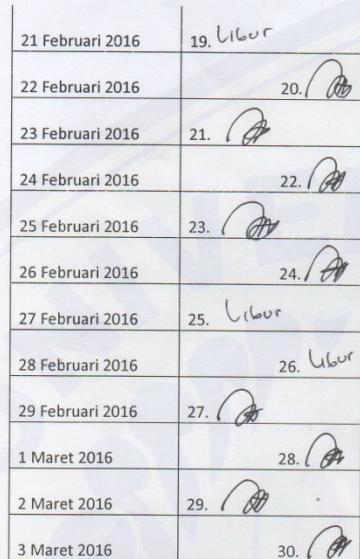 21 Februari 2016 19. Libur
22 Februari 2016 20.
23 Februari 2016 21.
24 Februari 2016 22.
25 Februari 2016 23.
26 Februari 2016 24.
27 Februari 2016 25. Libur
28 Februari 2016 26. Libur
29 Februari 2016 27.
1 Maret 2016 28.
2 Maret 2016 29.
3 Maret 2016 30.